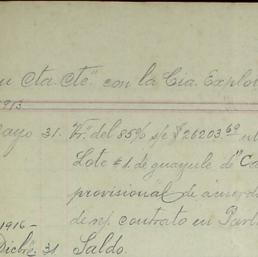 Cta. Cte." con la Cia. Explo
1913
ayo 31. Fr. del 85% s/e $26203.60
Lote #1. de guayule de "Ca
provisional de acuerdo
de n/. contrato en Part
1916-
Dicbre. 31 Saldo.